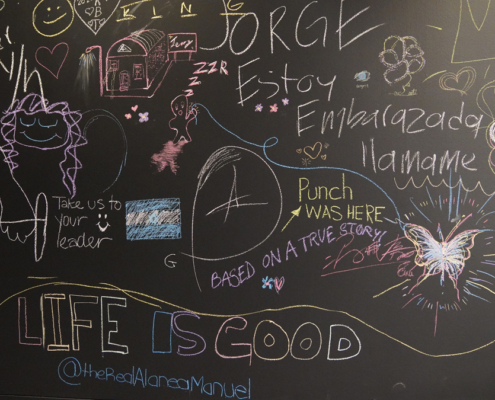 KING
JORGE
Estoy
Embarazada
llamame
ZZZ
Take us to
your
leader
A
G
Punch
WAS HERE
BASED ON A TRUE STORY
LIFE IS GOOD
@theRealAlaneaManuel